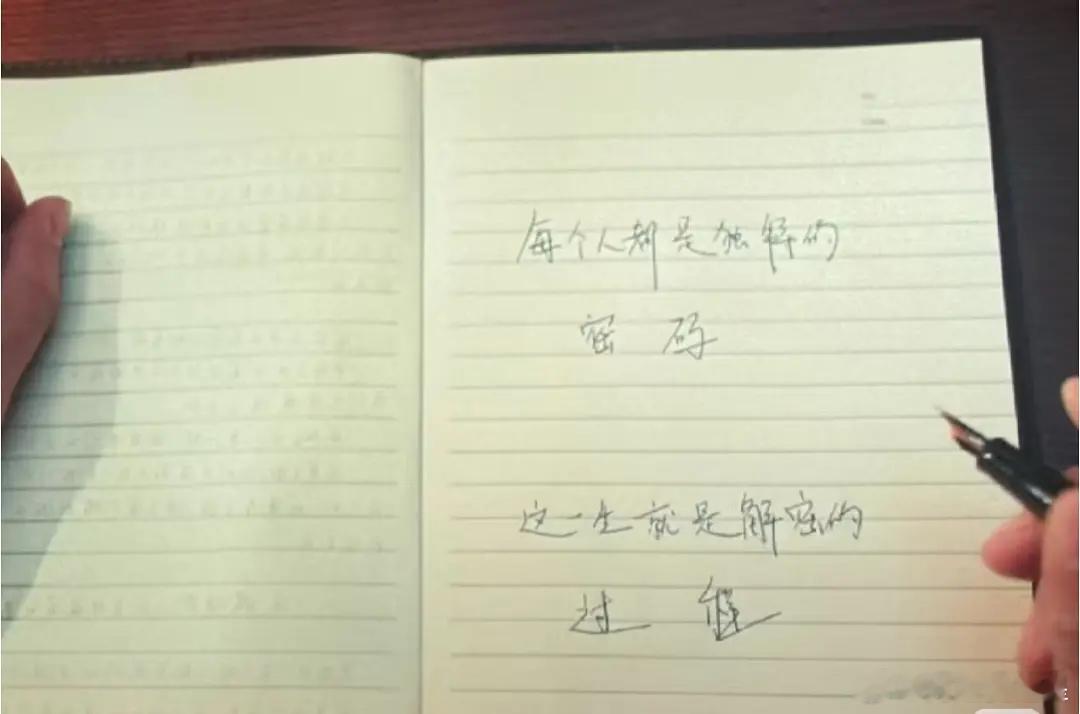 每个人都是独解的
密码
这一生就是解密的
过程